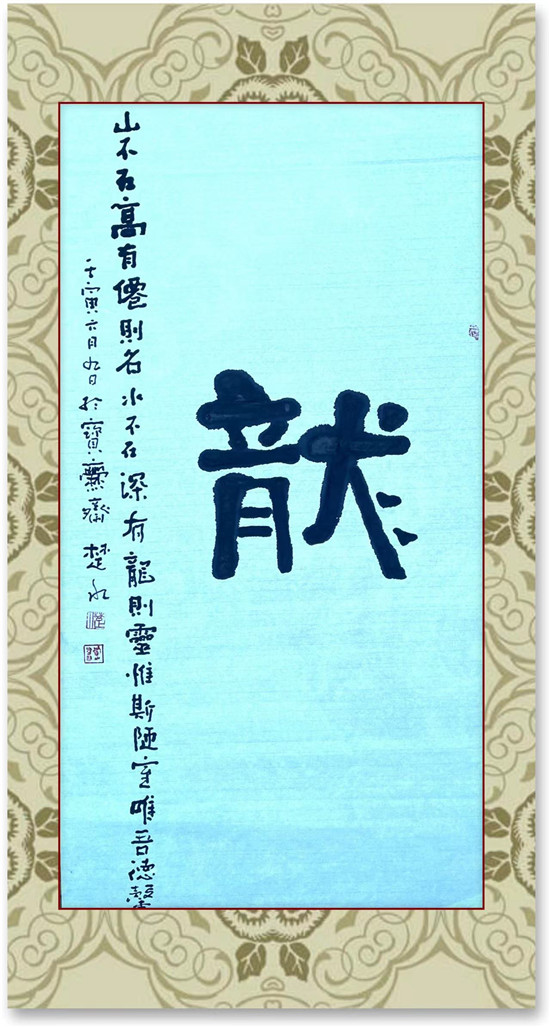 龍
山不在高有僊則名水不在深有龍則靈惟斯陋室唯吾德馨
壬寅六月九日於寶齋 楚水